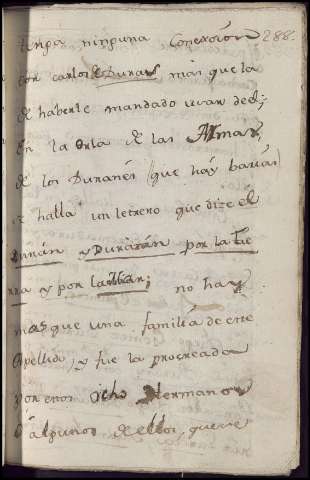 tenga ninguna Conexsion 288.
con carlos de Duran mas que la
de haberle mandado
En la Orla de las Armas,
de los Duranes (que hay barias)
se halla un letrero que dize el
Durán y Durarán por la tie
rra y por la Mar; no hay
mas que una familia de este
Apellido, y fue la procreada
por enos Ocho Hermanos
ó algunos de ellos, que